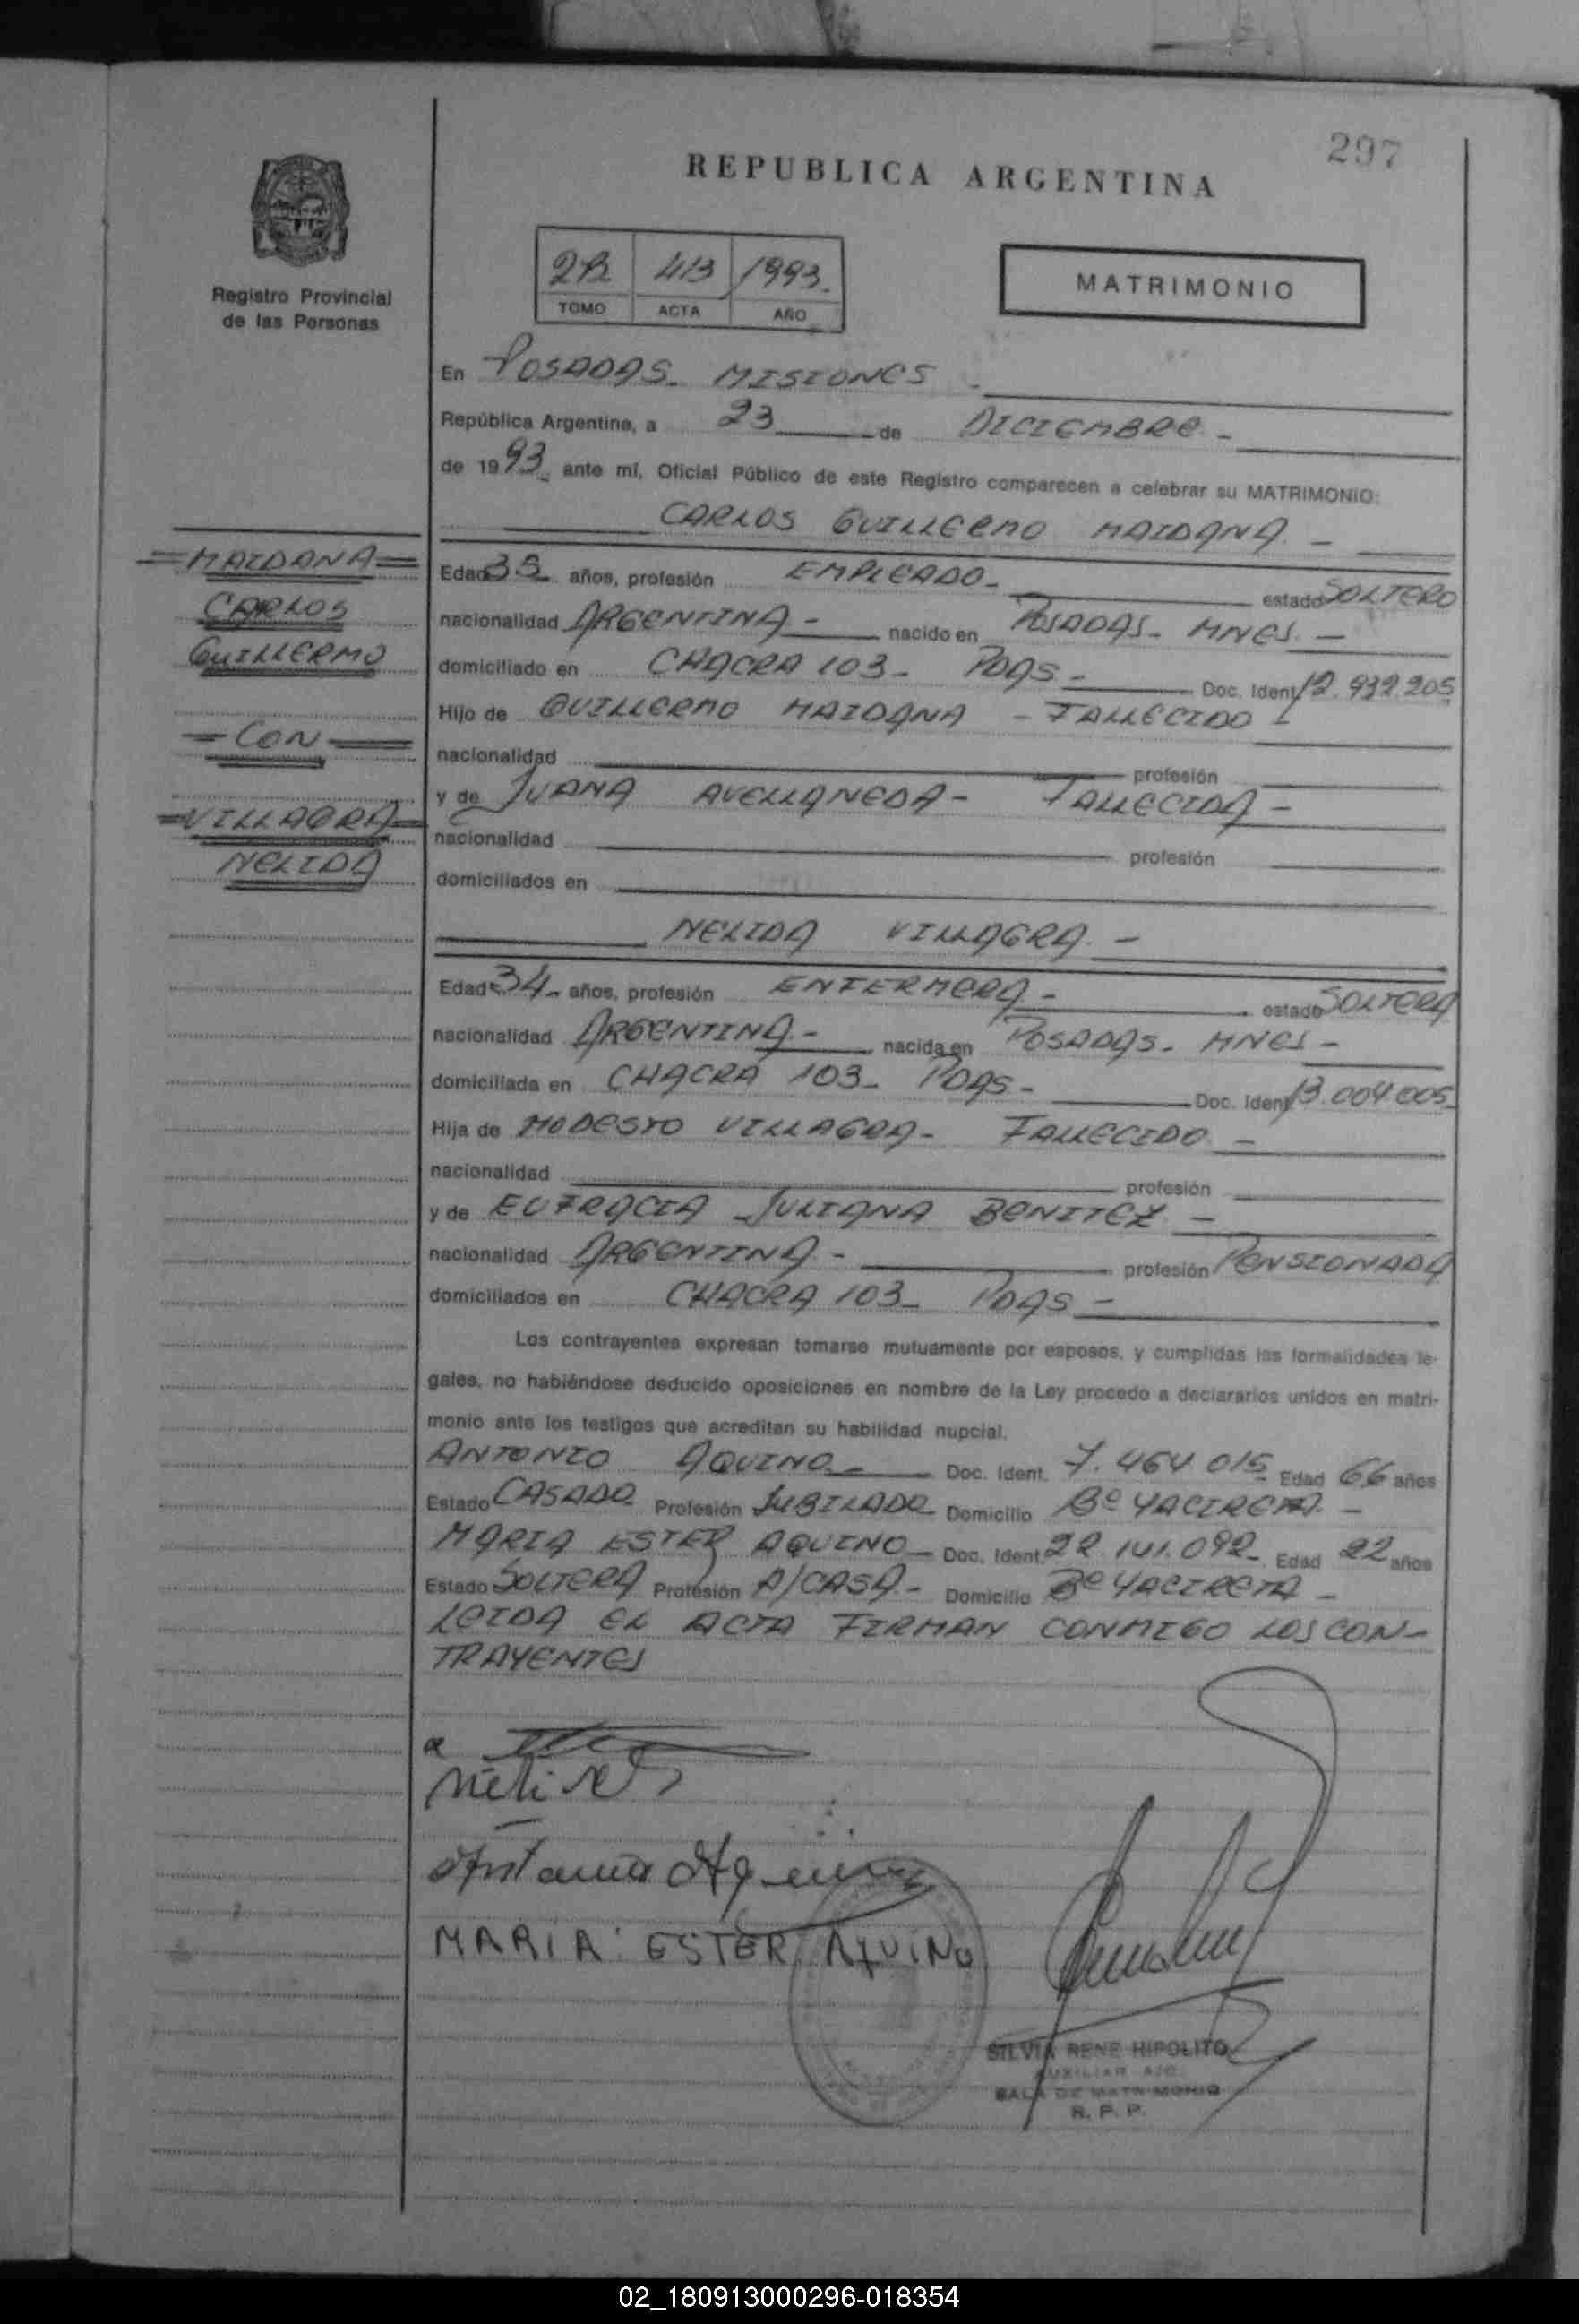 297
REPUBLICA ARGENTINA
Registro Provincial
de las Personas
2B 413 1993.
TOMO ACTA AÑO
MATRIMONIO
En POSADAS - MISIONES -
República Argentina, a 23 de DICIEMBRE -
de 1993 ante mí, Oficial Público de este Registro comparecen a celebrar su MATRIMONIO:
CARLOS GUILLERMO MAIDANA -
=MAIDANA=
CARLOS
GUILLERMO
=CON=
=VILLAGRA=
NELIDA
Edad 35 años, profesión EMPLEADO - estado SOLTERO
nacionalidad ARGENTINA - nacido en POSADAS - MNES -
domiciliado en CHACRA 103 - PDAS - Doc. Ident. 12.932.205
Hijo de GUILLERMO MAIDANA - FALLECIDO -
nacionalidad profesión
y de JUANA AVELLANEDA - FALLECIDA -
nacionalidad profesión
domiciliados en
NELIDA VILLAGRA -
Edad 34 - años, profesión ENFERMERA - estado SOLTERA
nacionalidad ARGENTINA - nacida en POSADAS - MNES -
domiciliada en CHACRA 103 - PDAS - Doc. Ident. 13.004.005
Hija de MODESTO VILLAGRA - FALLECIDO -
nacionalidad profesión
y de EUFRACIA JULIANA BENITEZ -
nacionalidad ARGENTINA - profesión PENSIONADA
domiciliados en CHACRA 103 - PDAS -
Los contrayentes expresan tomarse mutuamente por esposos, y cumplidas las formalidades le-
gales, no habiéndose deducido oposiciones en nombre de la Ley procedo a declararlos unidos en matri-
monio ante los testigos que acreditan su habilidad nupcial.
ANTONIO AQUINO - Doc. Ident. 7.464.015 Edad 66 años
Estado CASADO Profesión JUBILADO Domicilio Bº YACIRETA -
MARIA ESTER AQUINO - Doc. Ident. 22.141.092 - Edad 22 años
Estado SOLTERA Profesión A/CASA - Domicilio Bº YACIRETA -
LEIDA EL ACTA FIRMAN CONMIGO LOS CON-
TRAYENTES
MARIA ESTER AQUINO
SILVIA RENE HIPOLITO
AUXILIAR A/C
SALA DE MATRIMONIO
R. P. P.
02_180913000296-018354